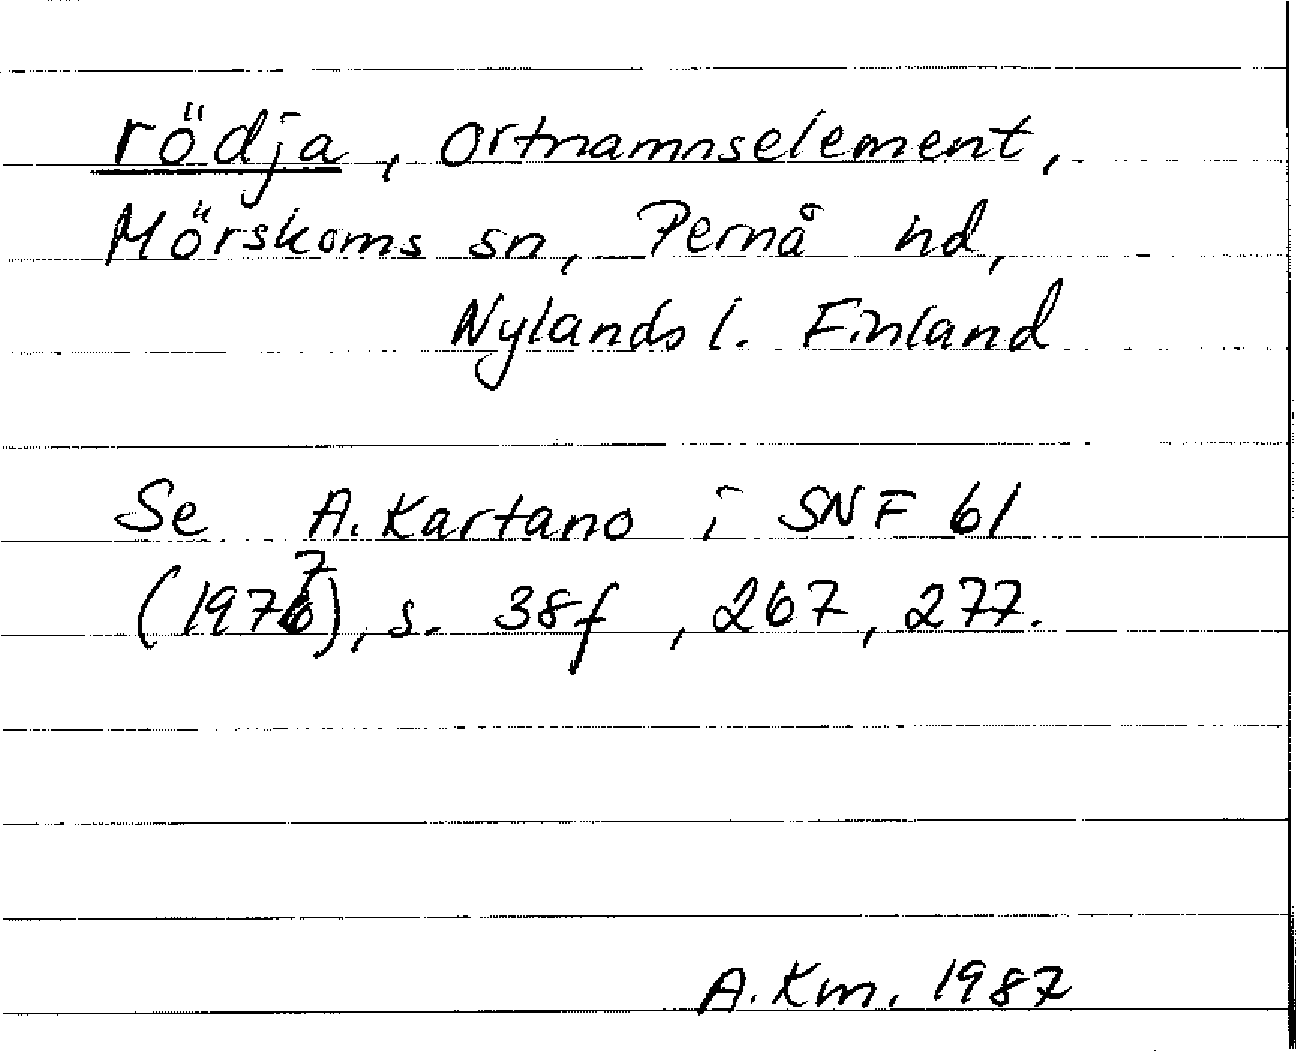 rödja, ortnamnselement,
Mörskoms sn, Pernå hd,
Nylands l. Finland
Se A. Kartano i SNF 61
(1977), s. 38f, 267, 277.
A. Km. 1987